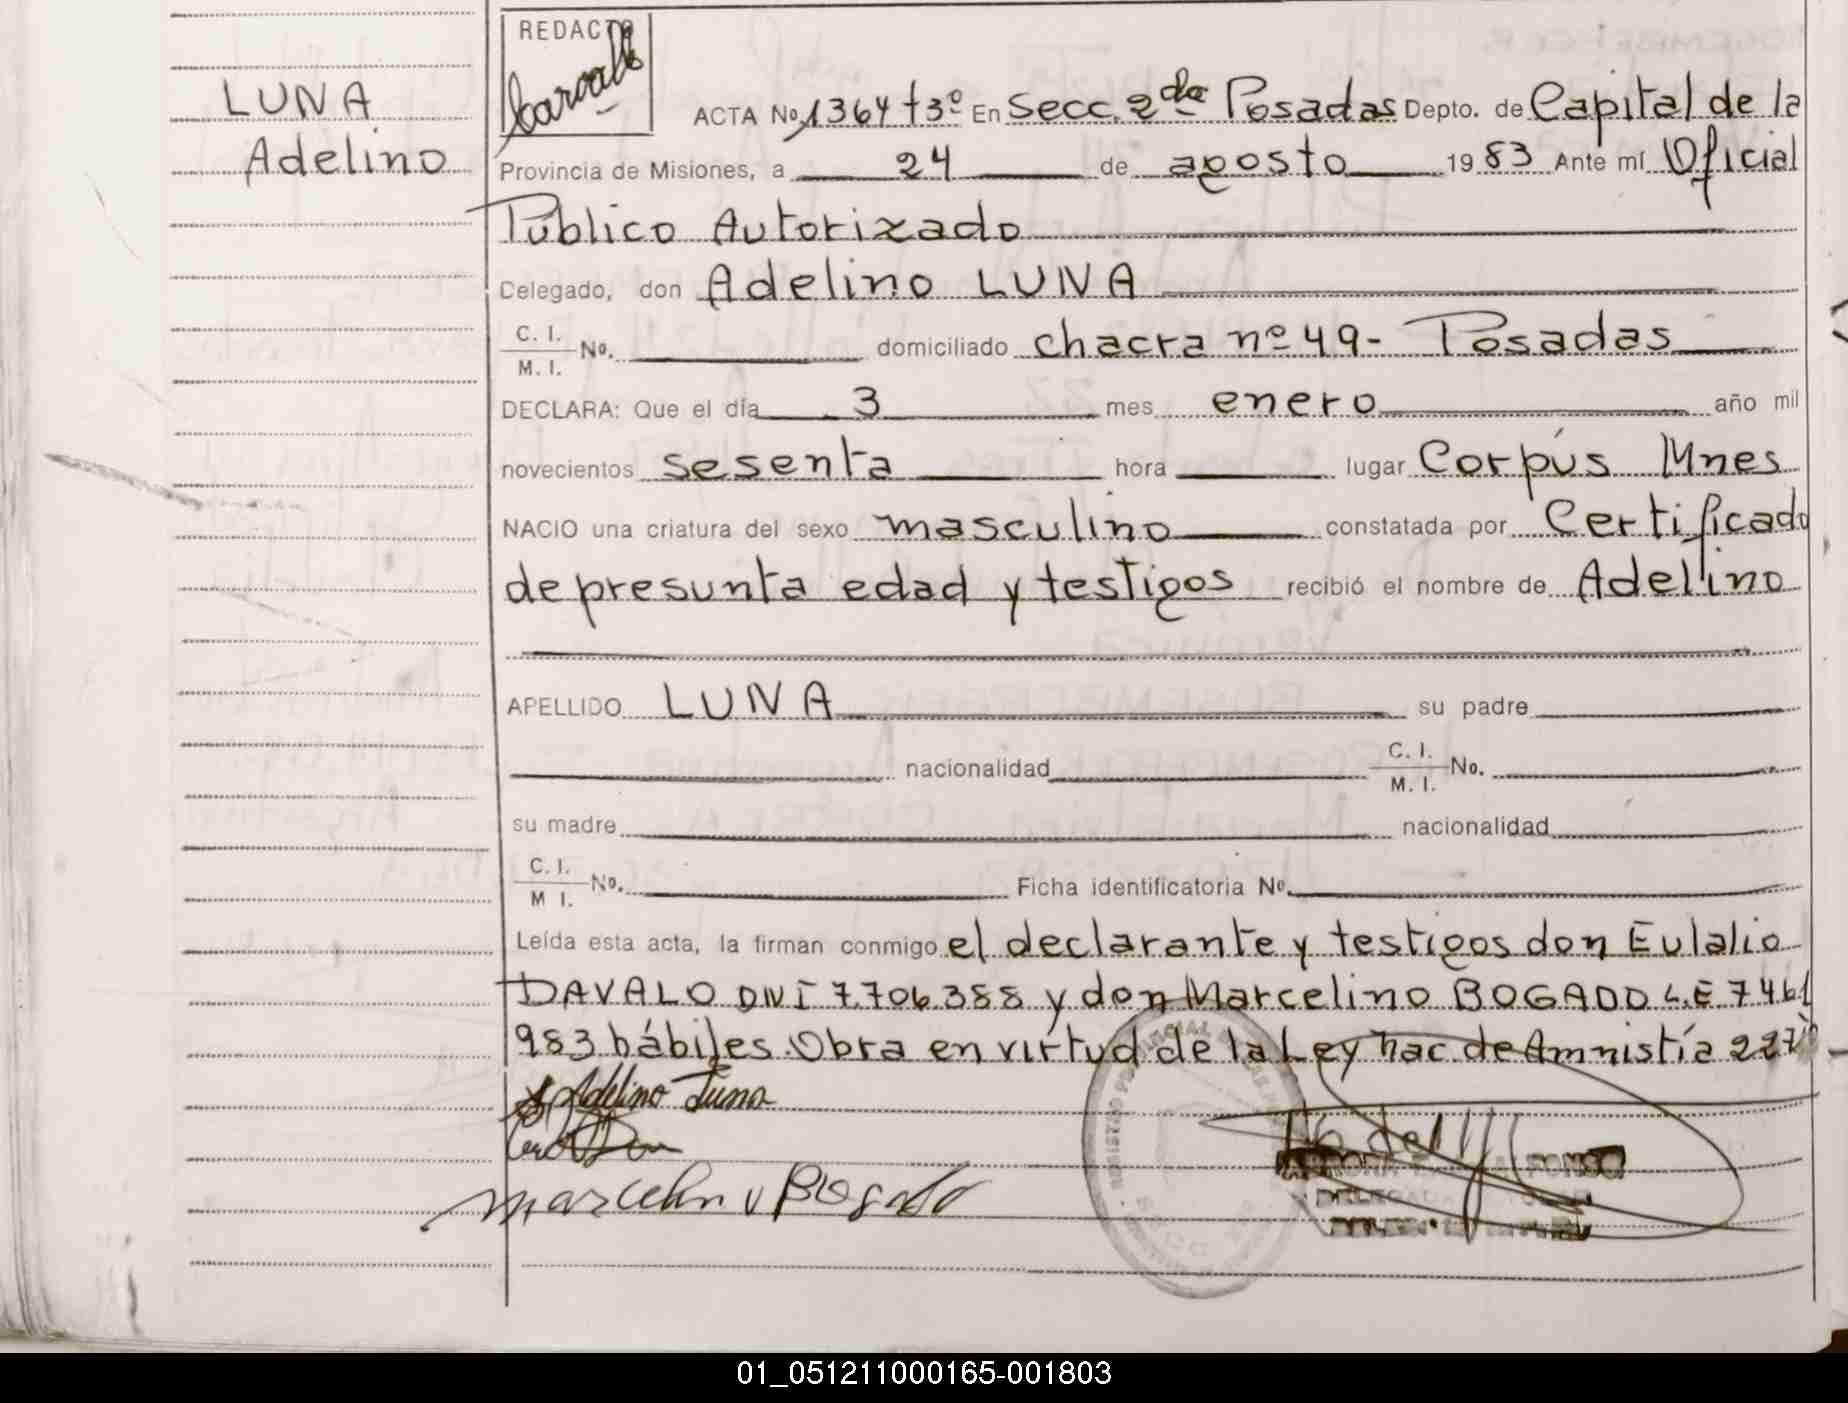 REDACTO
LUNA
Adelino
ACTA No 1364 t3º En Secc. 2da Posadas Depto. de Capital de la
Provincia de Misiones, a 24 de agosto 1983 Ante mí Oficial
Público Autorizado
Celegado, don Adelino LUNA
C. I.
M. I. No. domiciliado chacra nº 49- Posadas
DECLARA: Que el día 3 mes enero año mil
novecientos sesenta hora lugar Corpús Mnes
NACIO una criatura del sexo masculino constatada por Certificado
de presunta edad y testigos recibió el nombre de Adelino
APELLIDO LUNA su padre
nacionalidad C. I.
M. I. No.
su madre nacionalidad
C. I.
M I. No. Ficha identificatoria No.
Leída esta acta, la firman conmigo el declarante y testigos don Eulalio
DAVALO DNI 7.706.388 y don Marcelino BOGADO L.E 7461
983 hábiles. Obra en virtud de la Ley nac. de Amnistía
Adelino Luna
Marcelino Bogado
01_051211000165-001803